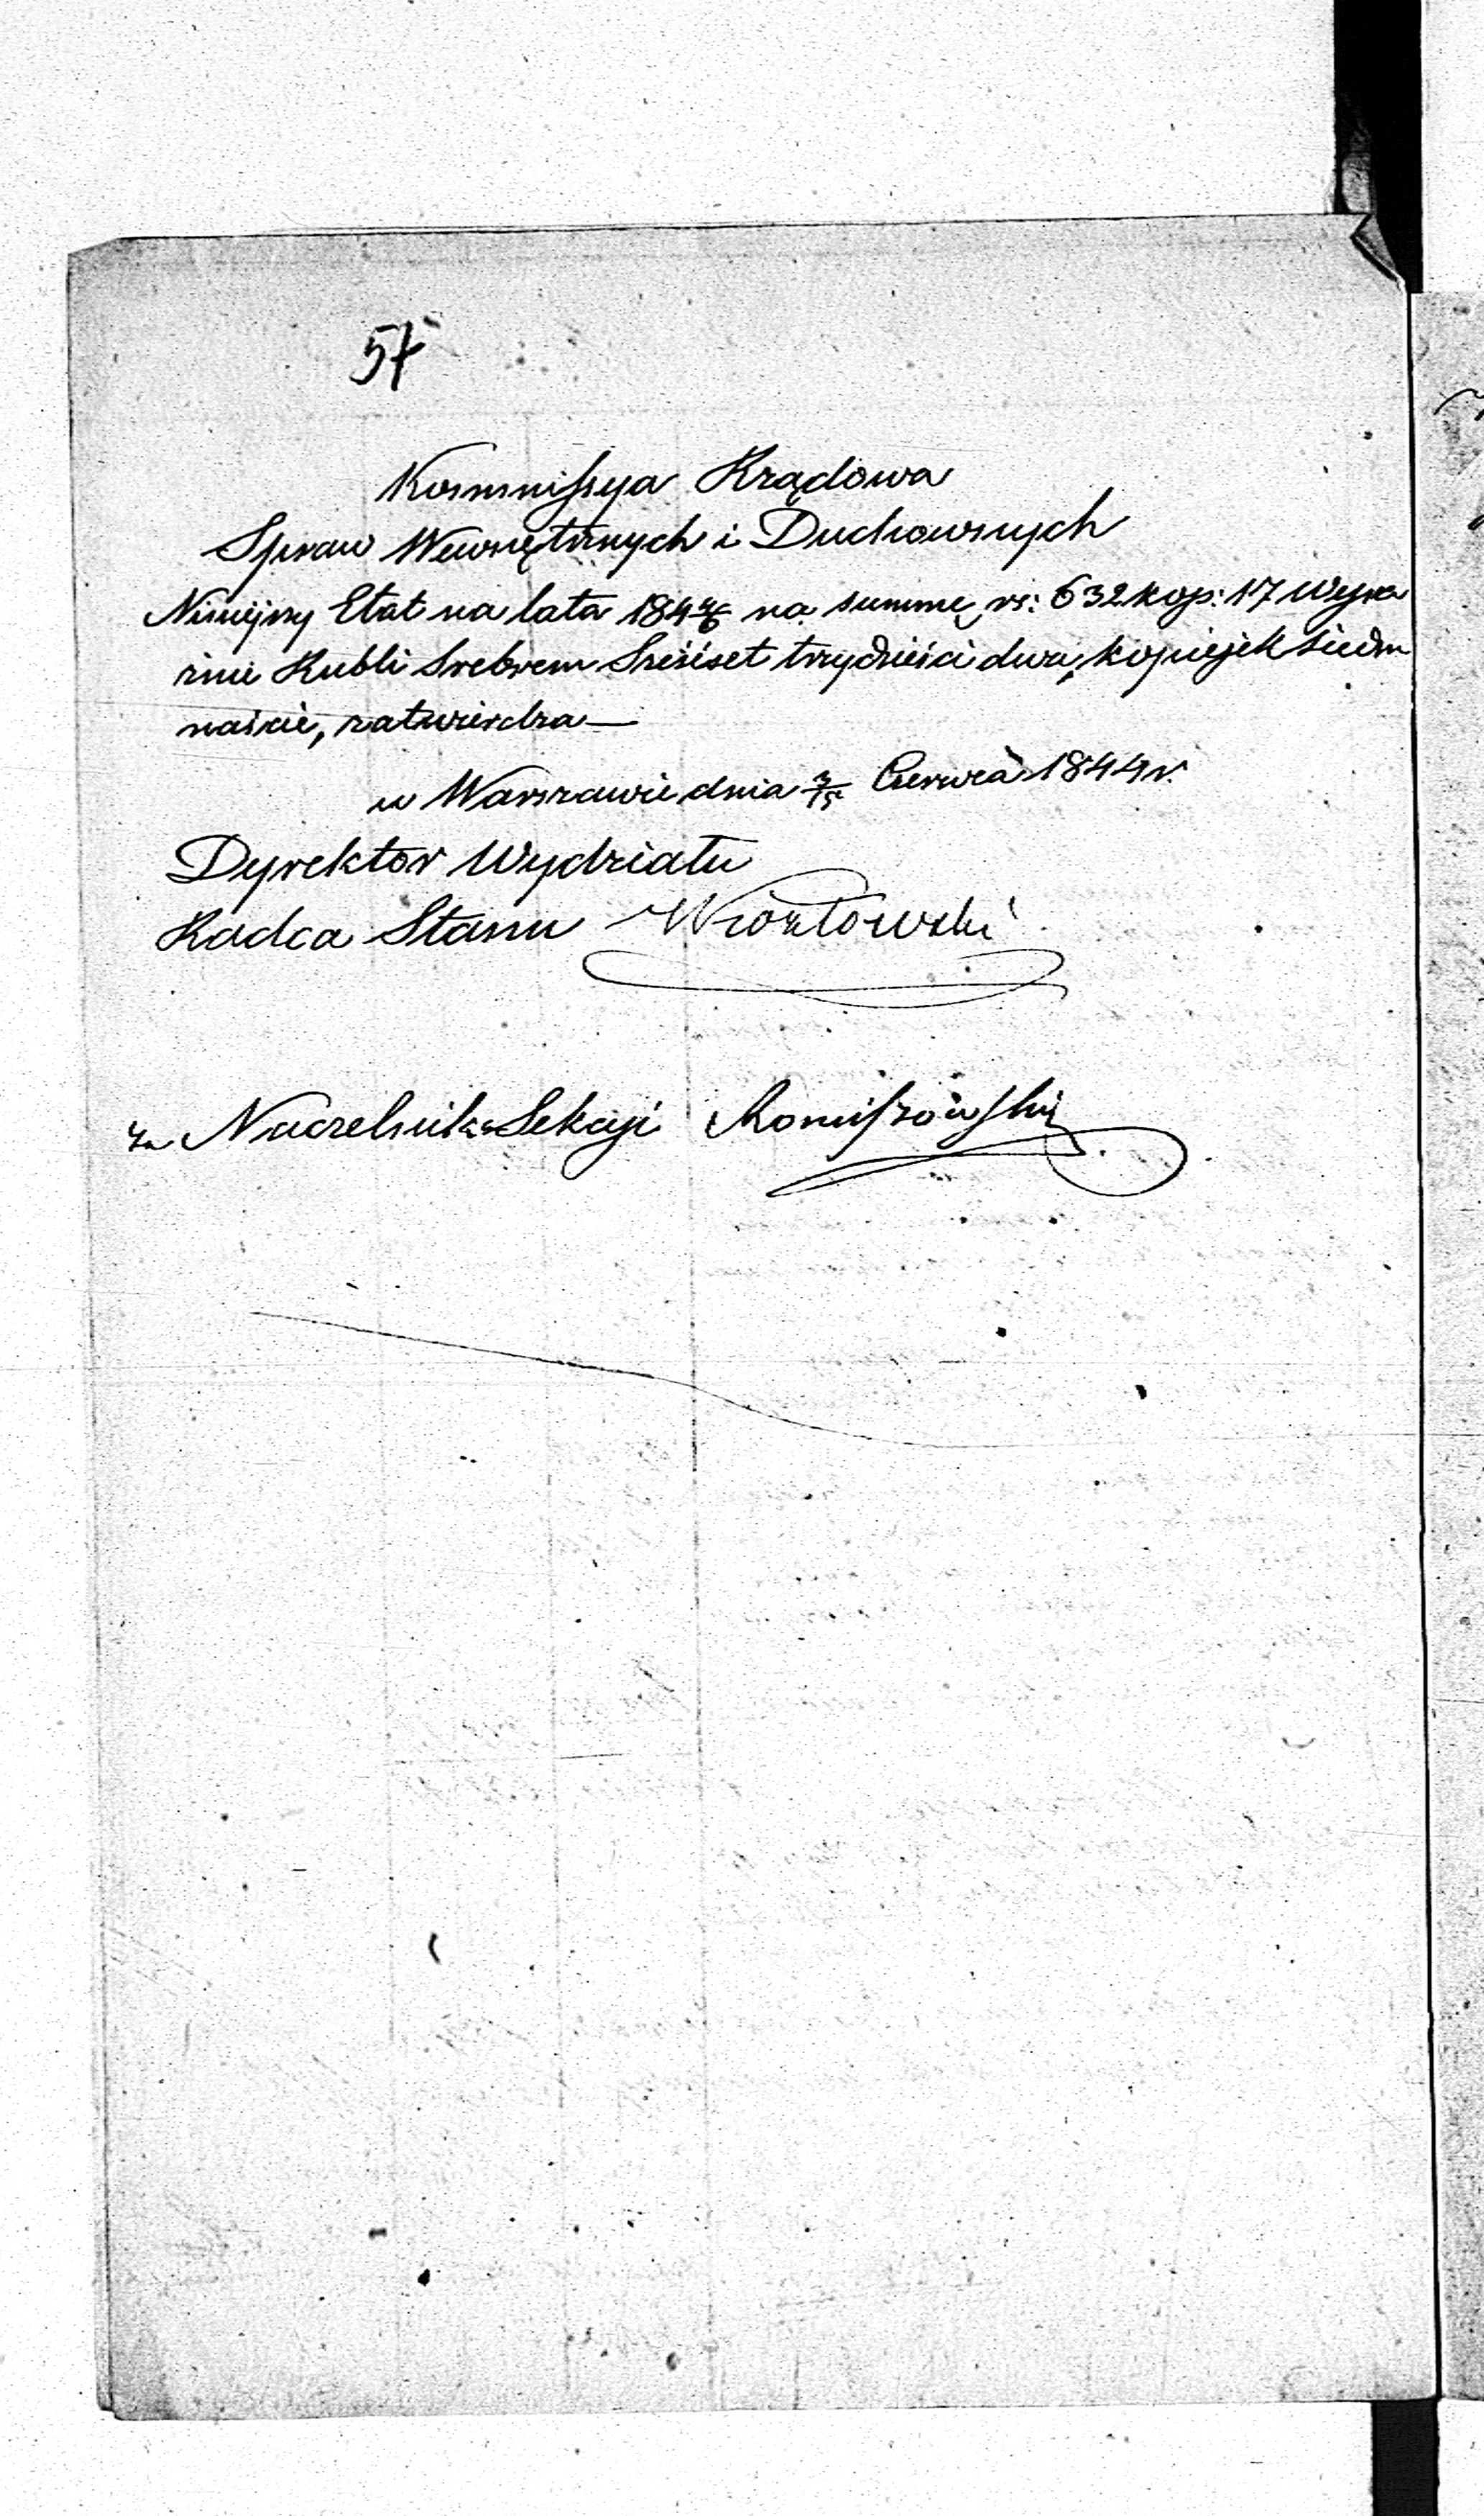 57
Kommissya Rządowa
Spraw Wewnętrznych i Duchownych
Niniejszy Etat na lata 184 4/6 na summę rs: 632 kop: 17 Wyra
źnie Rubli Srebrem Sześćset trzydzieści dwa, kopiejek siedm
naście, zatwierdza —
w Warszawie dnia 3/15 Czerwca 1844 r.
Dyrektor Wydziału
Radca Stanu
za Naczelnika Sekcyi